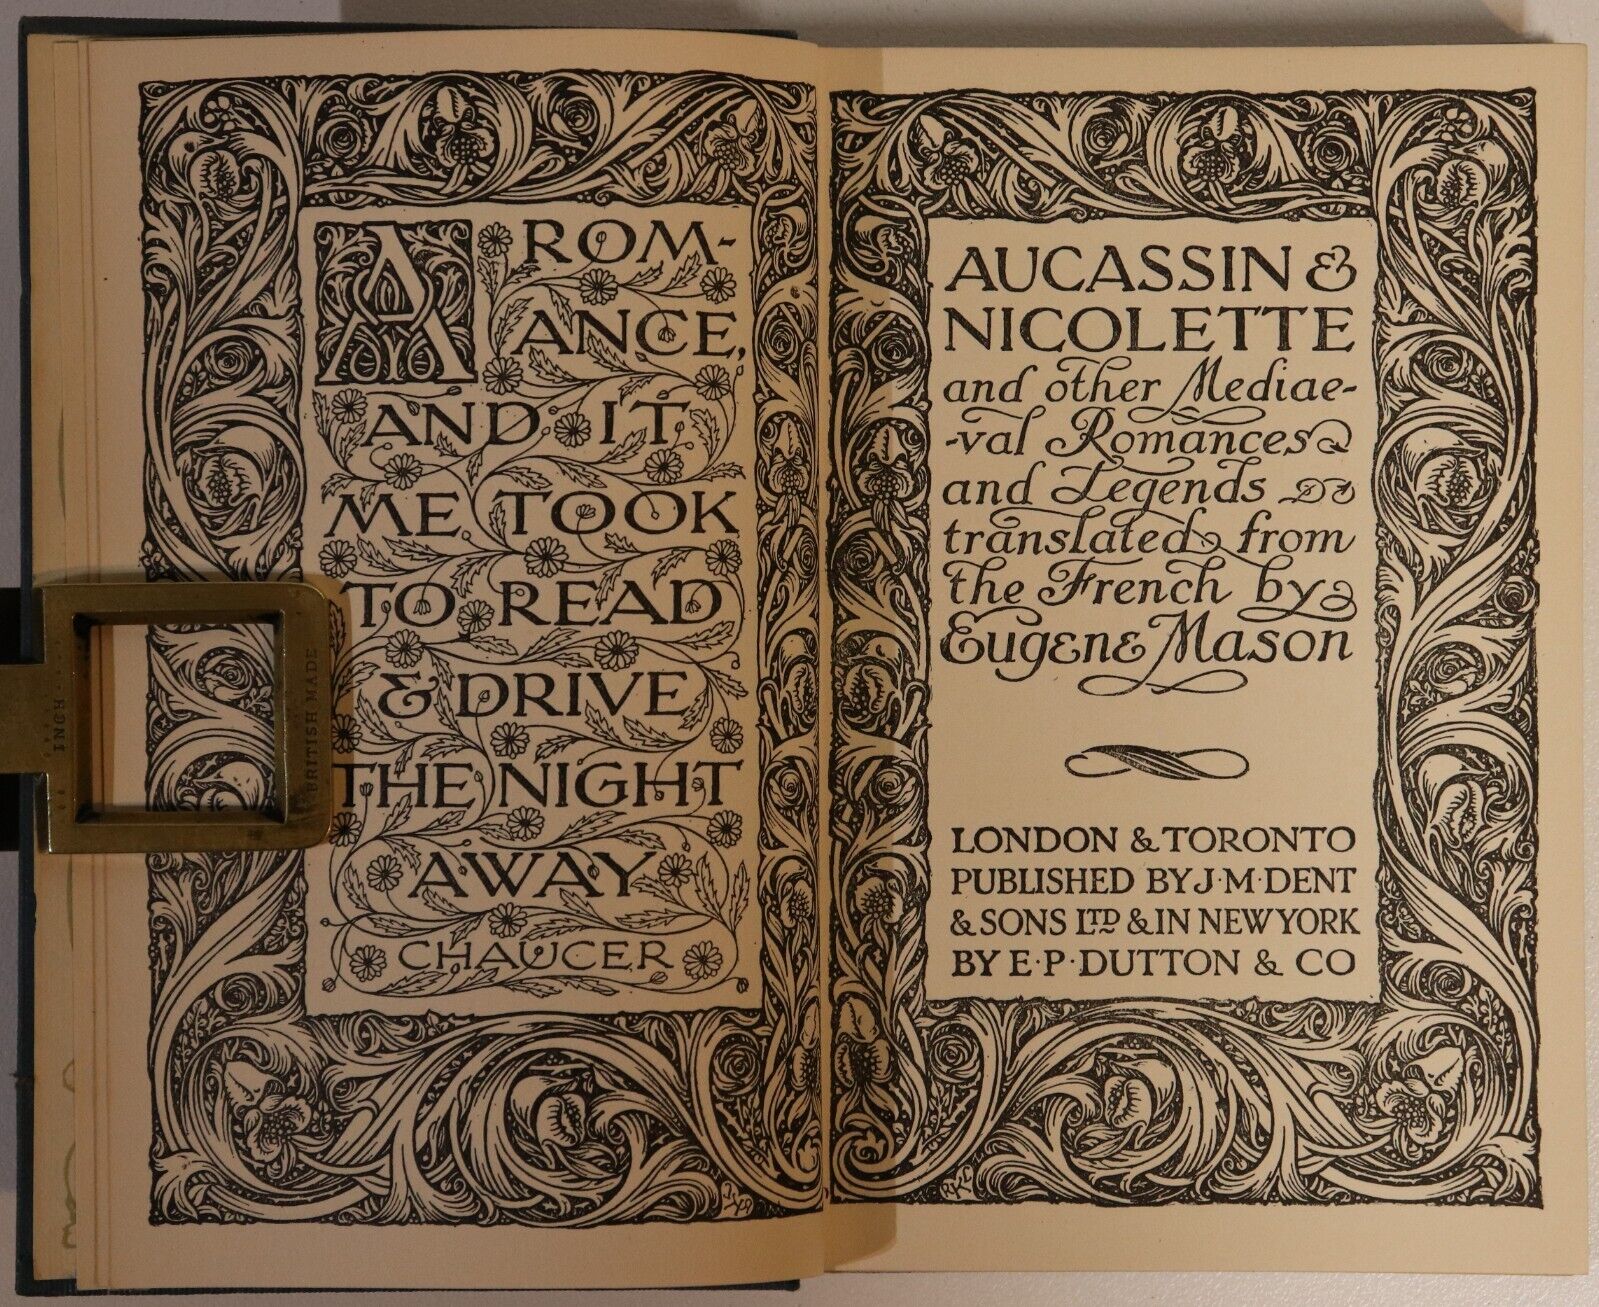 A ROM-
ANCE,
AND IT
ME TOOK
TO READ
& DRIVE
THE NIGHT
AWAY
CHAUCER
INCH
BRITISH MADE
AUCASSIN &
NICOLETTE
and other Mediae-
-val Romances
and Legends
translated from
the French by
Eugene Mason
LONDON & TORONTO
PUBLISHED BY J·M·DENT
& SONS LTD & IN NEW YORK
BY E·P·DUTTON & CO